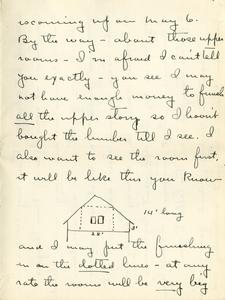 coming up on May 6.
By the way - about those upper
rooms - I'm afraid I can't tell
you exactly - you see I may
not have enough money to finish
all the upper story so I haven't
bought the lumber till I see. I
also want to see the room first.
it will be like this you know
14' long
3'
22'
and I may put the finishing
in on the dotted lines - at any
rate the rooms will be very big